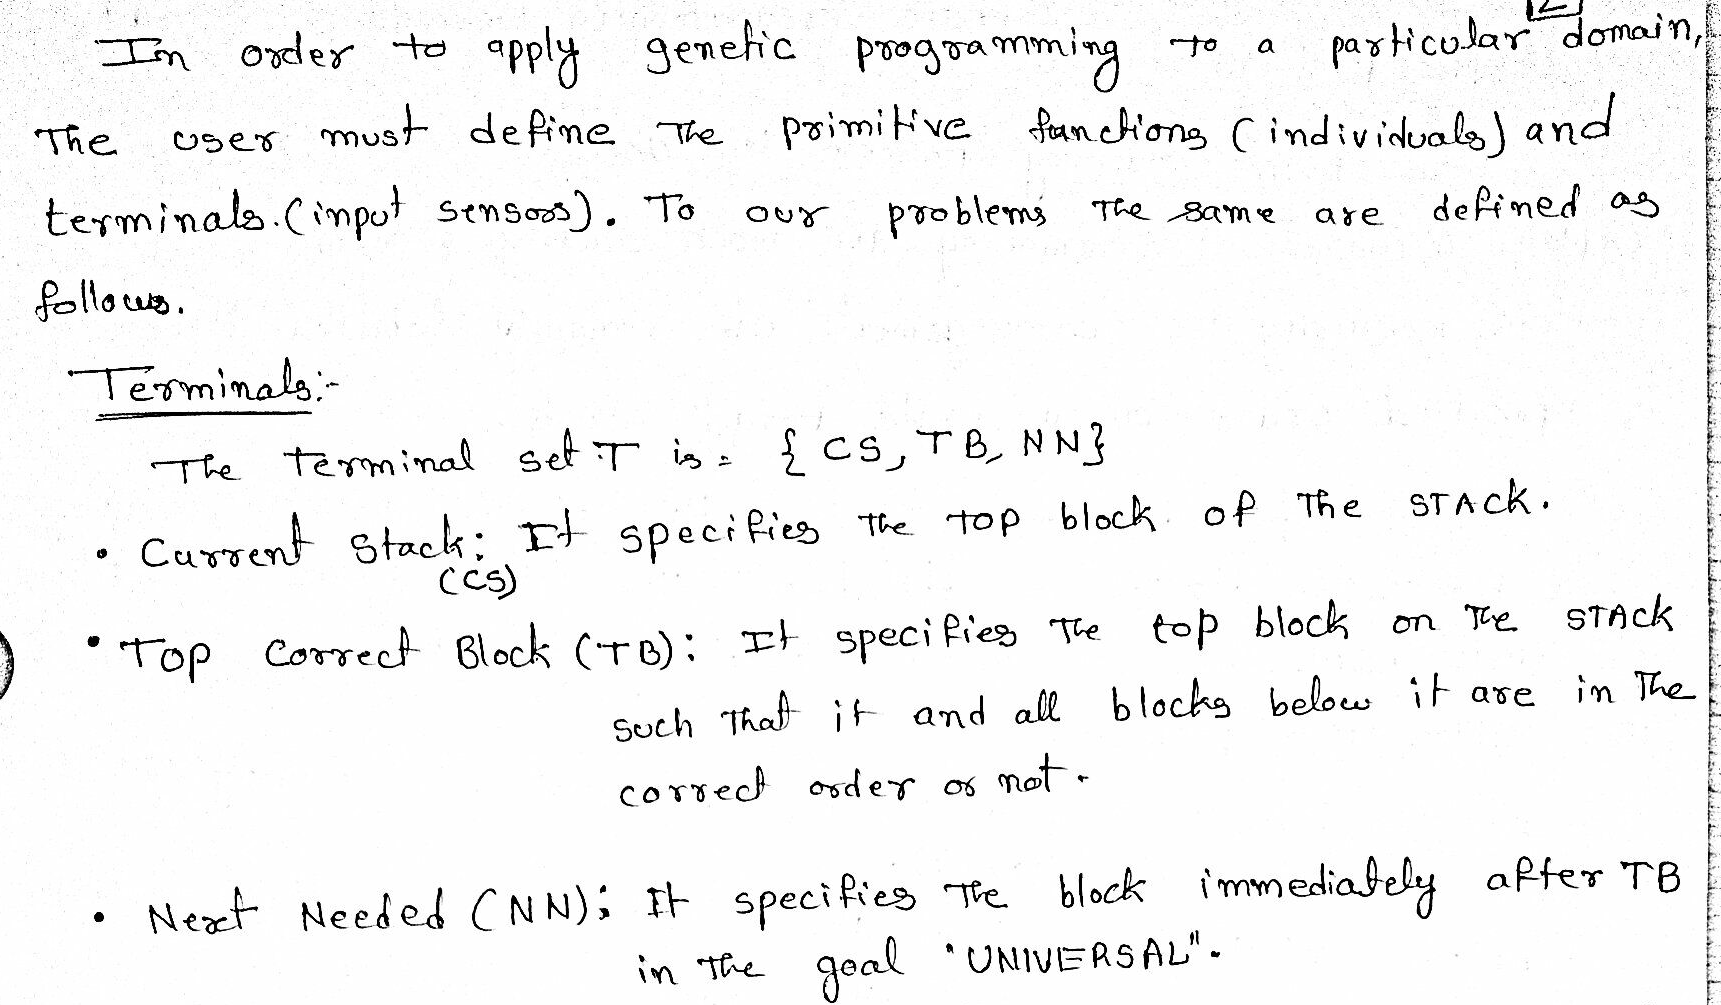 In order to apply genetic programming to a particular domain,
The user must define The primitive functions (individuals) and
terminals.(input sensors). To our problems The same are defined as
follows.
Terminals:-
The terminal set T is = { CS, TB, NN}
• Current Stack: It specifies The top block of The STACK.
(CS)
• Top Correct Block (TB): It specifies The top block on The STACK
such That it and all blocks below it are in The
correct order or not.
• Next Needed (NN): It specifies The block immediately after TB
in The goal "UNIVERSAL".